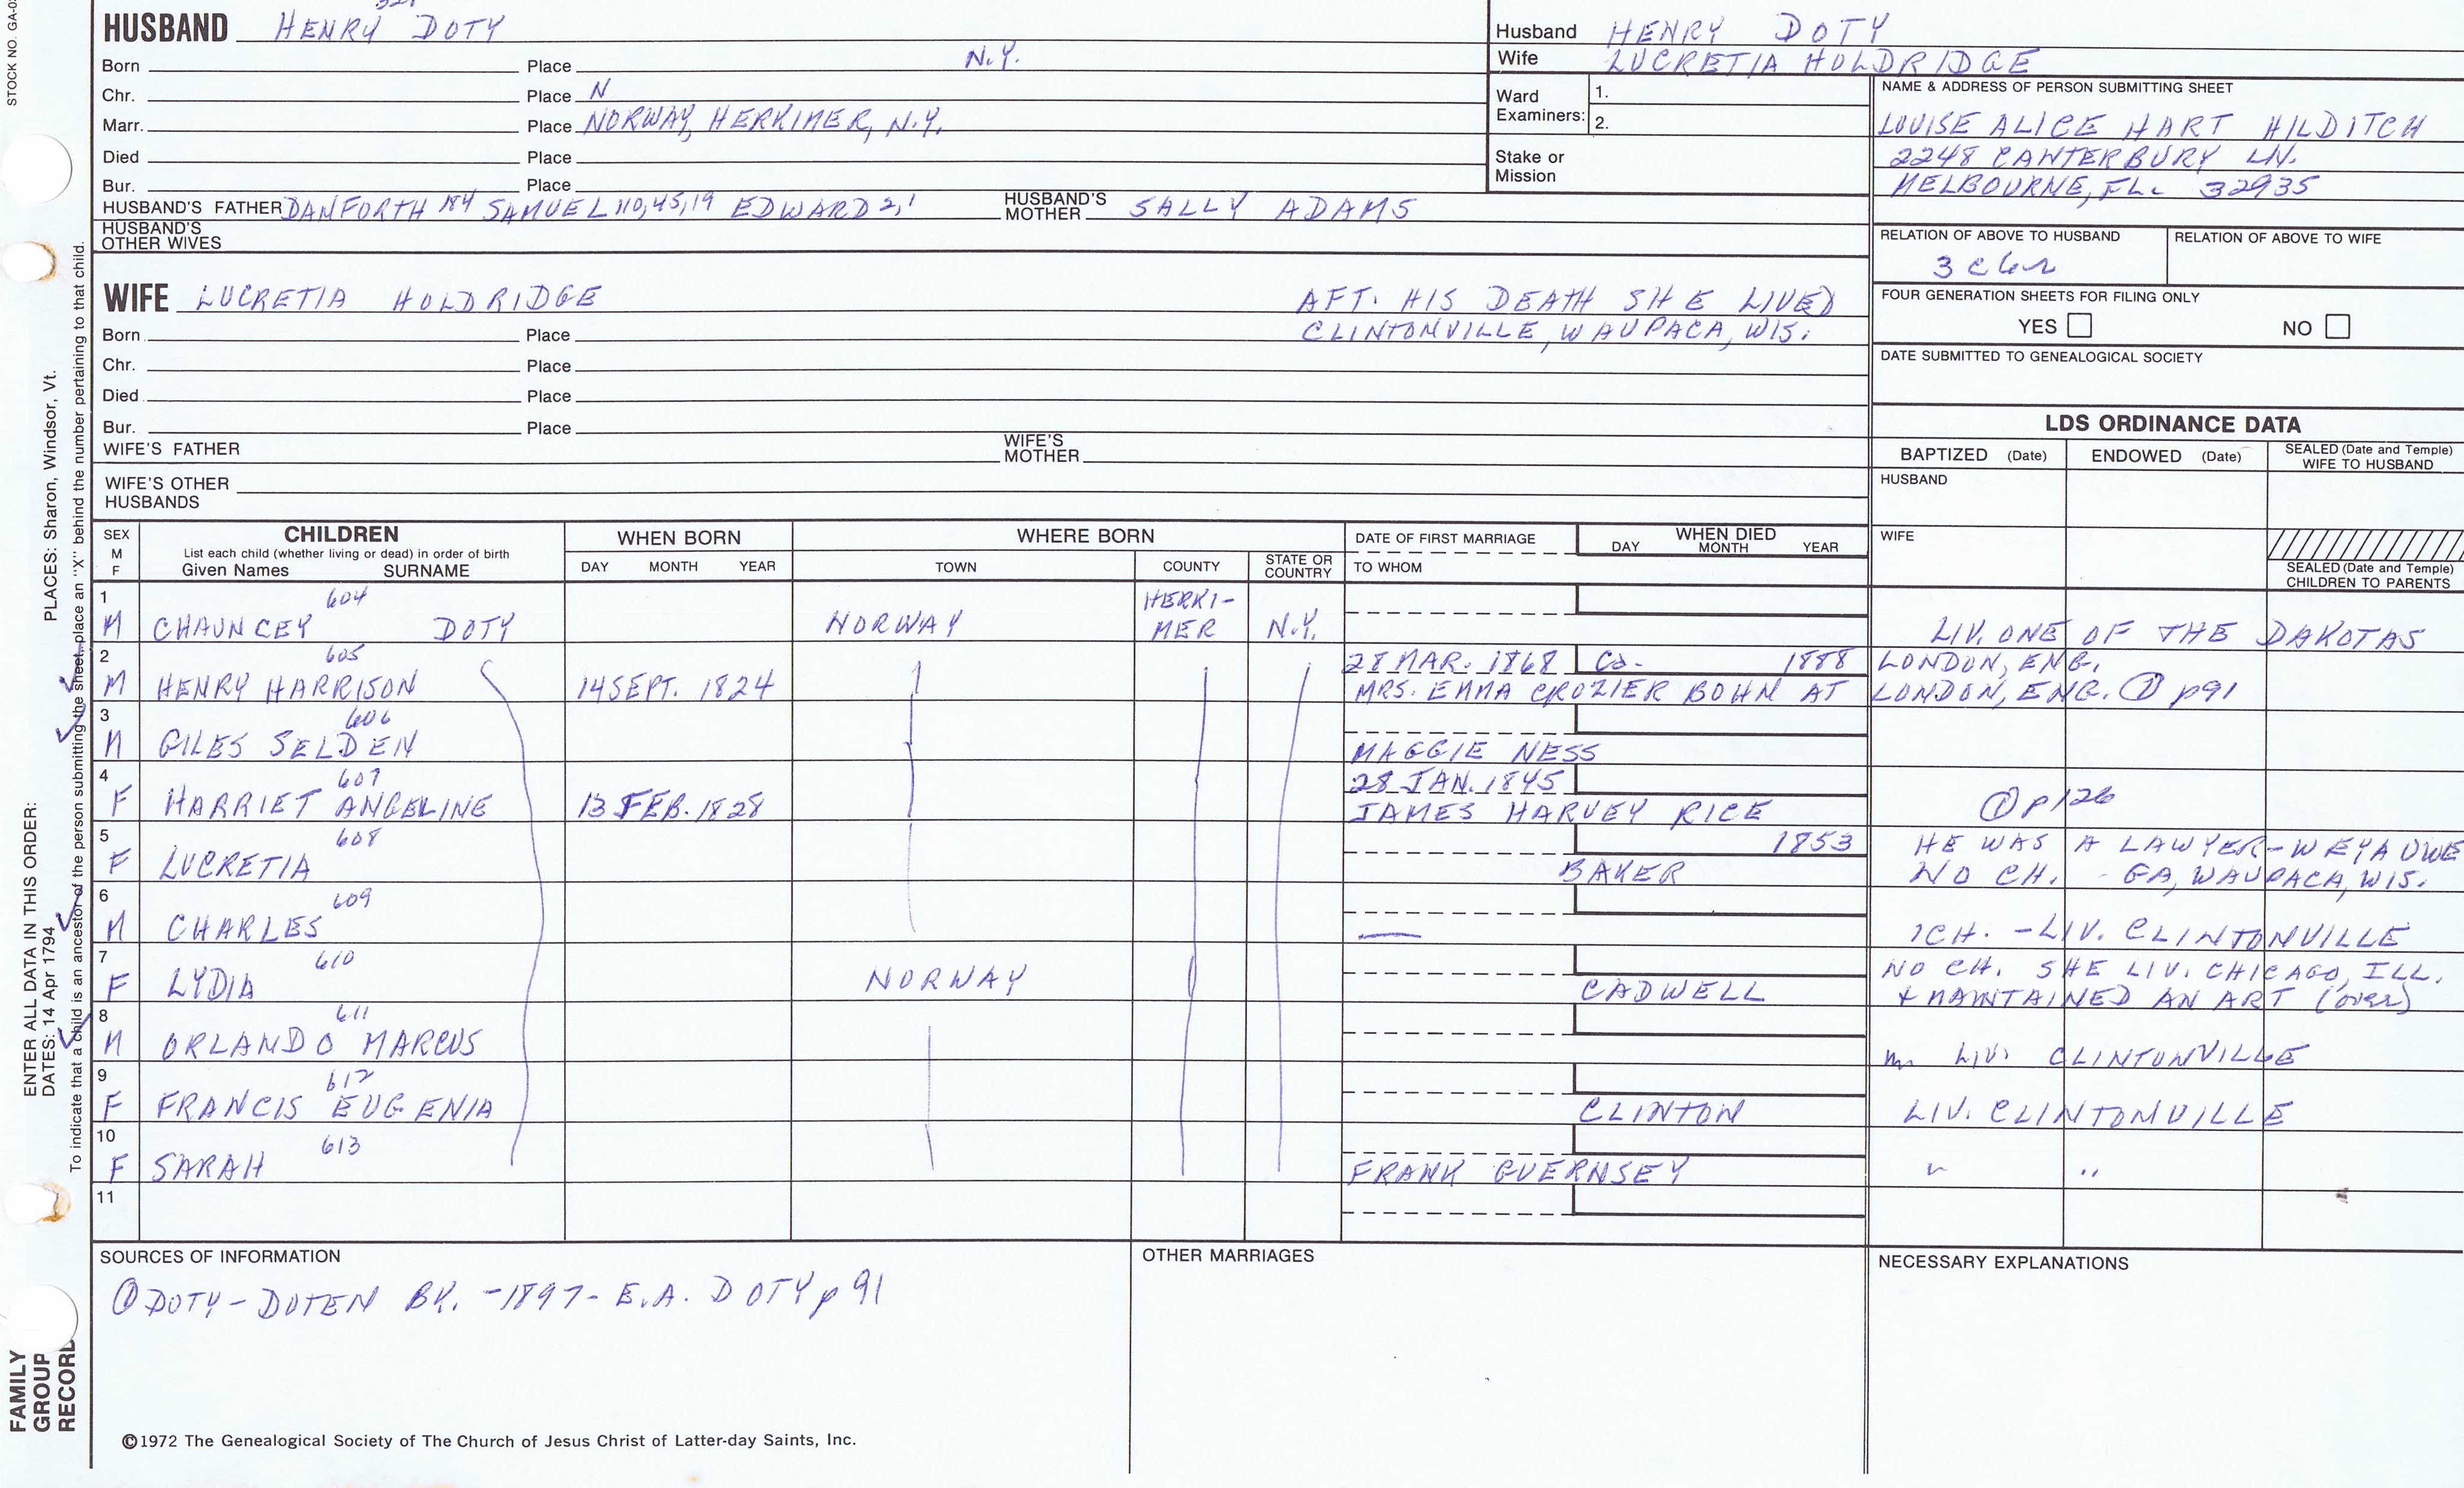 STOCK NO. GA-0
HUSBAND HENRY DOTY
Born Place N.Y.
Chr. Place N
Marr. Place NORWAY, HERKIMER, N.Y.
Died Place
Bur. Place
HUSBAND'S FATHER DANFORTH 184 SAMUEL 110,45,19 EDWARD 2,1 HUSBAND'S MOTHER SALLY ADAMS
HUSBAND'S OTHER WIVES
Husband HENRY DOTY
Wife LUCRETIA HOLDRIDGE
Ward Examiners: 1.
2.
Stake or Mission
NAME & ADDRESS OF PERSON SUBMITTING SHEET
LOUISE ALICE HART HILDITCH
2248 CANTERBURY LN.
MELBOURNE, FL. 32935
RELATION OF ABOVE TO HUSBAND RELATION OF ABOVE TO WIFE
WIFE LUCRETIA HOLDRIDGE AFT. HIS DEATH SHE LIVED
Born Place CLINTONVILLE, WAUPACA, WIS.
Chr. Place
Died Place
Bur. Place
WIFE'S FATHER WIFE'S MOTHER
WIFE'S OTHER HUSBANDS
FOUR GENERATION SHEETS FOR FILING ONLY
YES NO
DATE SUBMITTED TO GENEALOGICAL SOCIETY
LDS ORDINANCE DATA
BAPTIZED (Date) ENDOWED (Date) SEALED (Date and Temple) WIFE TO HUSBAND
HUSBAND
WIFE
SEALED (Date and Temple) CHILDREN TO PARENTS
SEX M F CHILDREN WHEN BORN WHERE BORN DATE OF FIRST MARRIAGE WHEN DIED
List each child (whether living or dead) in order of birth
Given Names SURNAME DAY MONTH YEAR TOWN COUNTY STATE OR COUNTRY TO WHOM DAY MONTH YEAR
1 604 HERKI-
M CHAUNCEY DOTY NORWAY MER N.Y. LIV. ONE OF THE DAKOTAS
2 605 28 MAR. 1868 Ca. 1888 LONDON, ENG.
M HENRY HARRISON 14 SEPT. 1824 MRS. EMMA CROZIER BOHN AT LONDON, ENG. ① p91
3 606
M GILES SELDEN MAGGIE NESS
4 607 28 JAN. 1845
F HARRIET ANGELINE 13 FEB. 1828 JAMES HARVEY RICE ① p126
5 608 1853 HE WAS A LAWYER-WEYAUWE
F LUCRETIA BAKER NO CH. - GA, WAUPACA, WIS.
6 609
M CHARLES 1CH. - LIV. CLINTONVILLE
7 610 NO CH. SHE LIV. CHICAGO, ILL.
F LYDIA NORWAY CADWELL + MAINTAINED AN ART (over)
8 611
M ORLANDO MARCUS m LIV. CLINTONVILLE
9 612
F FRANCIS EUGENIA CLINTON LIV. CLINTONVILLE
10 613
F SARAH FRANK GUERNSEY " "
11
SOURCES OF INFORMATION OTHER MARRIAGES NECESSARY EXPLANATIONS
① DOTY-DOTEN BK. -1897- E.A. DOTY p 91
©1972 The Genealogical Society of The Church of Jesus Christ of Latter-day Saints, Inc.
ENTER ALL DATA IN THIS ORDER:
DATES: 14 Apr 1794 PLACES: Sharon, Windsor, Vt.
To indicate that a child is an ancestor of the person submitting the sheet, place an "X" behind the number pertaining to that child.
FAMILY
GROUP
RECORD